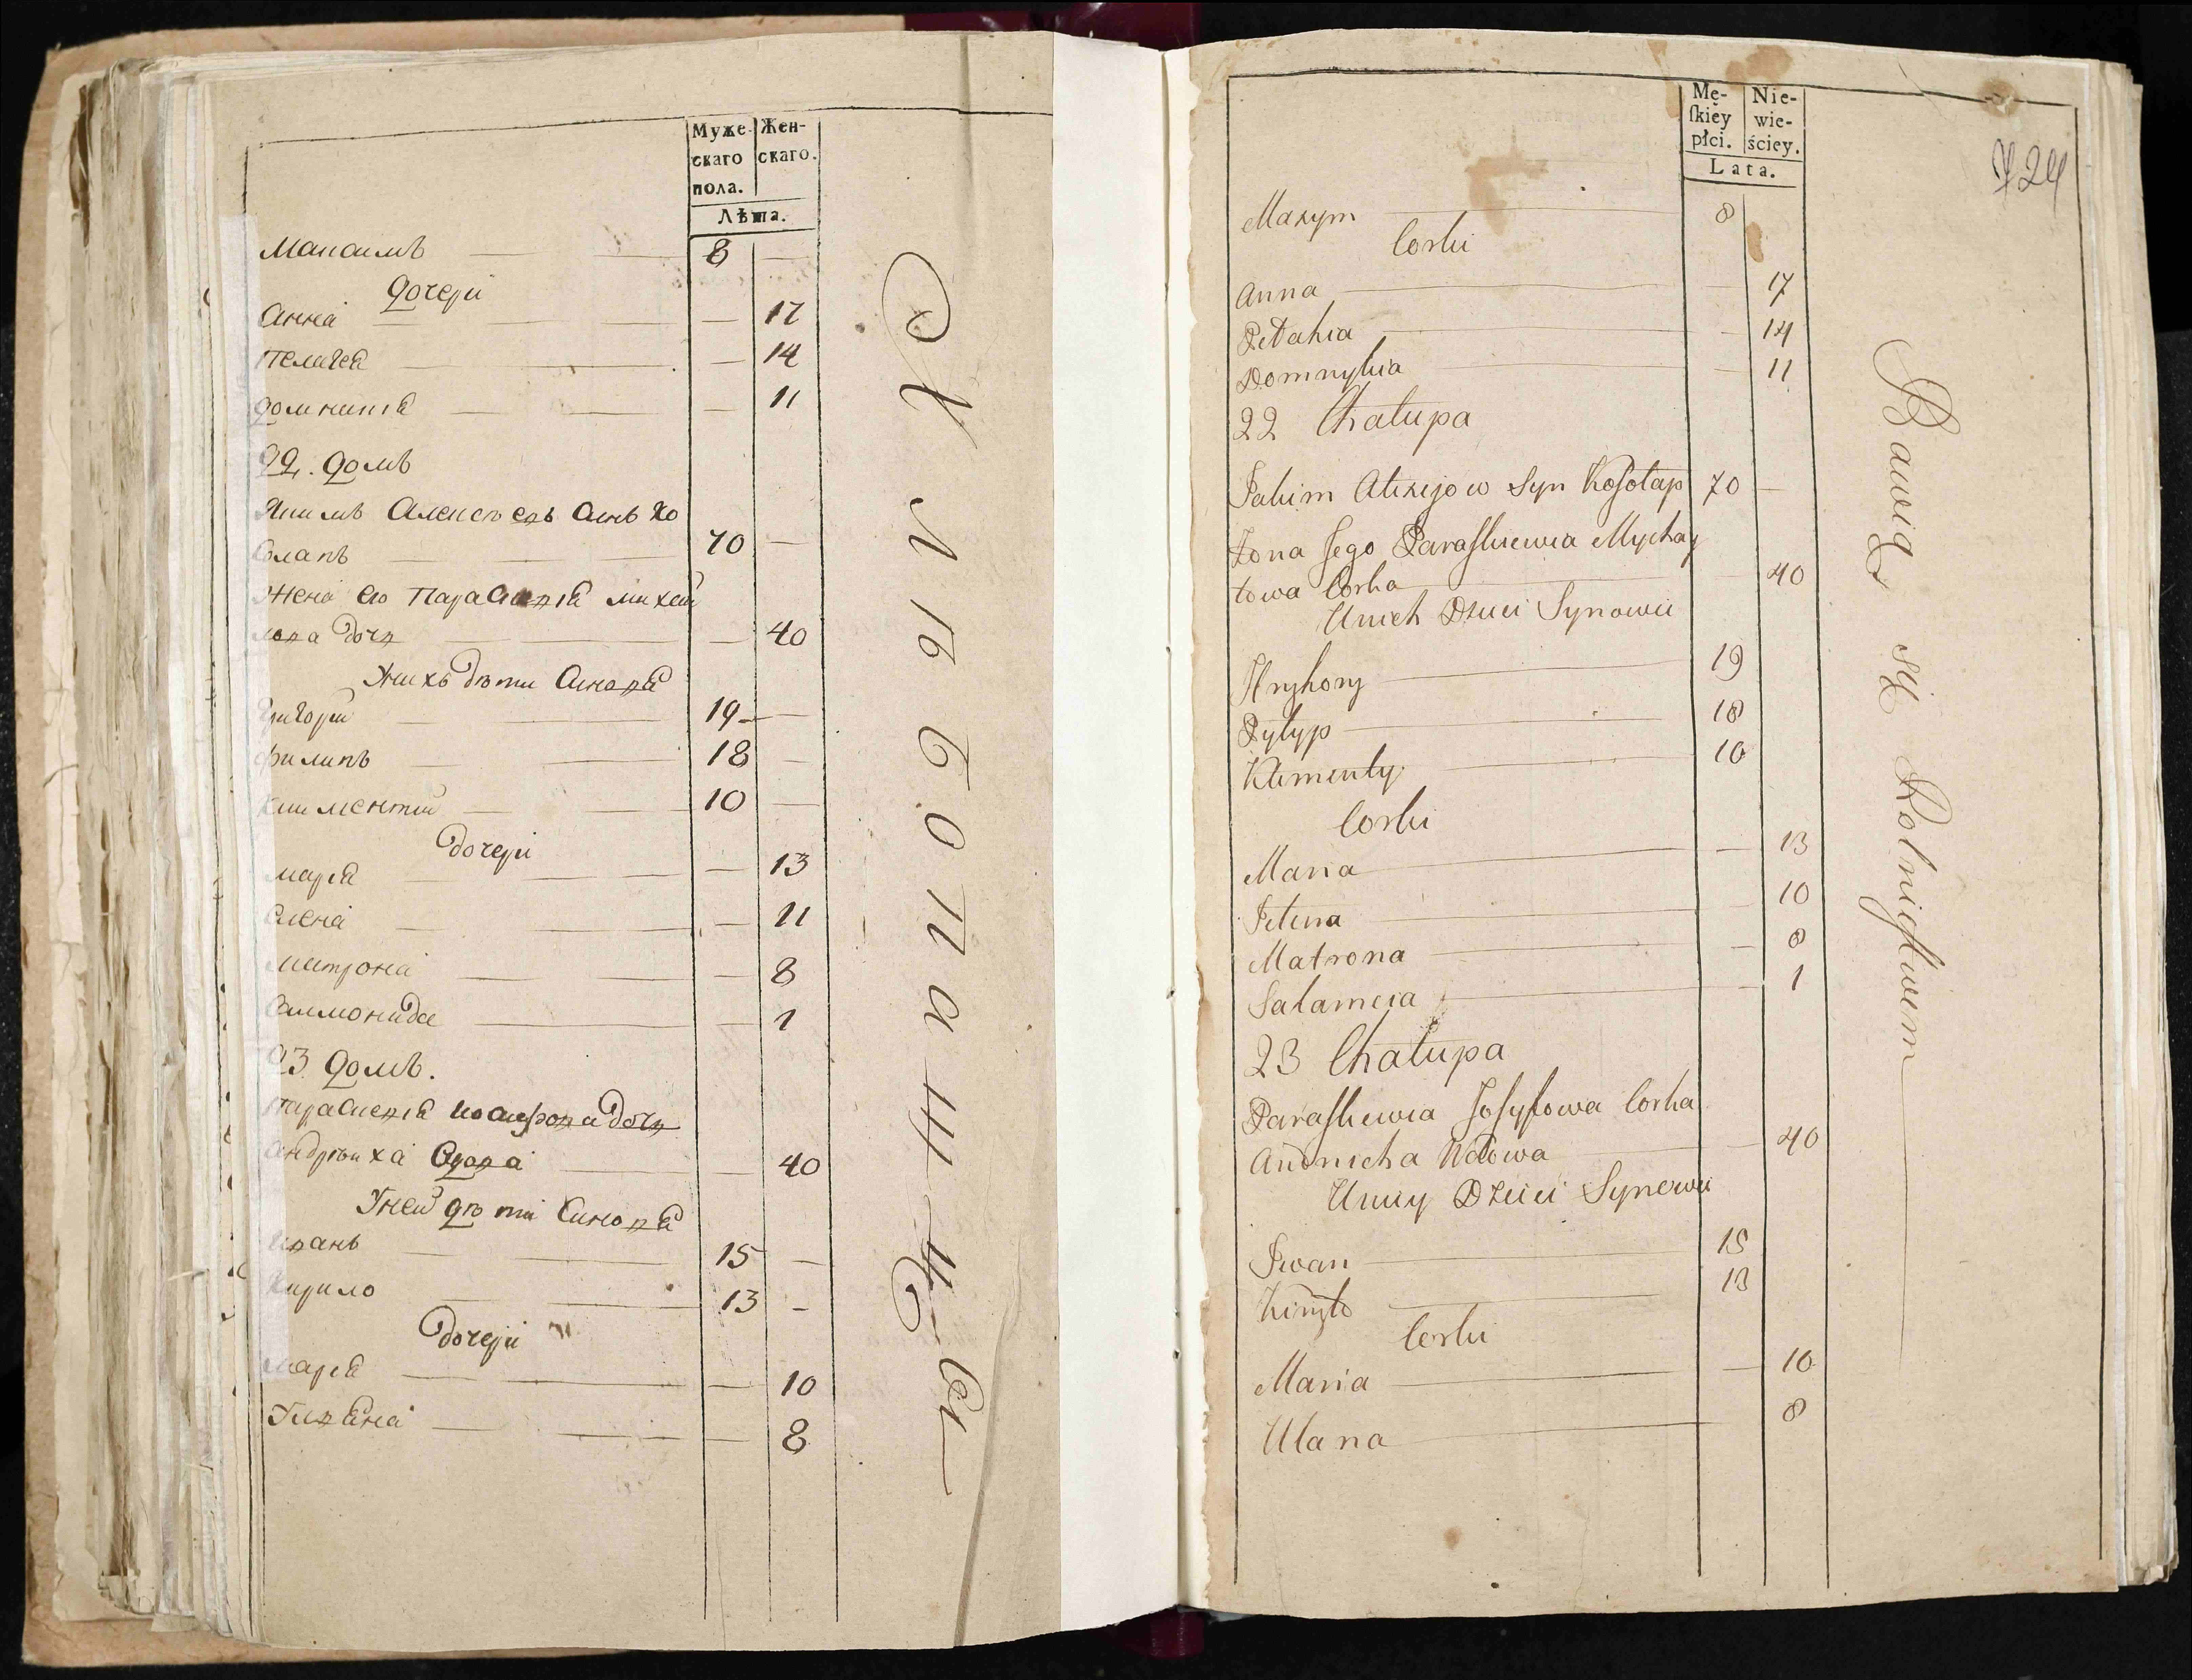 Муже-
скаго
пола.
Жен-
скаго.
Лѣта.
Максимъ 8 —
дочери
Анна — 17
Пелагея — 14
Домникія — 11
22. домъ
Якимъ Алексѣевъ синъ Ко
солапъ 70 —
Жена его Параскевія михай
лова дочь — 40
Унихъ дѣти Синовя
Григорій 19 —
филипъ 18 —
климентий 10 —
дочери
марія — 13
елена — 11
матрона — 8
Соломонида — 1
23 домъ.
параскевія иосифова дочь
андрѣиха вдова — 40
Уней дѣти Синовя
иванъ 15 —
Кирило 13 —
дочери
марія — 10
Улияна — 8
Хлѣбопашцы
Mę-
ſkiéy
płci.
Nie-
wie-
ściey.
Lata.
724
Maxym 8
Corki
Anna 17
Pełahia — 14
Domnykia — 11
22 Chałupa
Jakim Alexijow Syn Kosołap 70 —
Żona Jego Paraſkiewia Mychay
łowa Corka — 40
Unich Dzieci Synowie
Hryhory 19
Pyłyp 18
Klimenty 10
Corki
Maria — 13
Jelena 10
Matrona — 8
Sałameia — 1
23 Chałupa
Paraſkiewia Josyfowa Corka
Andriicha Wdowa — 40
Uniey Dzieci Synowie
Jwan 15
Kiryło 13
Corki
Maria — 10
Ulana 8
Bawią się Rolnictwem